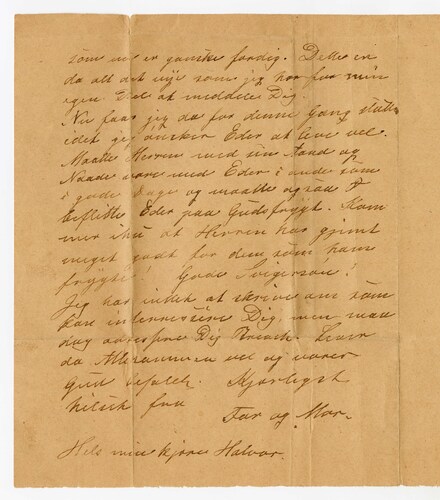 som nu er ganske færdig. Dette er
da alt det nye som jeg har for min
egen Deel at meddele Dig.
Nu faar jeg da for denne Gang slutte
idet jeg ønsker Eder at leve vel.
Maatte Herren med sin Aand og
Naade være med Eder i onde som
i gode dage og maatte ogsaa I
beflitte Eder paa Gudsfrygt. Kom
mer ihu at Herren har gjemt
meget godt for dem som ham
frygte! Gode Svigersøn!
Jeg har intet at skrive om som
kan interessere Dig, men maa
dog Dig. Lever
da Allesammen vel og være
Gud befalet. Kjærligst
hilset fra
Far og Mor.
Hils min kjære Halvor.